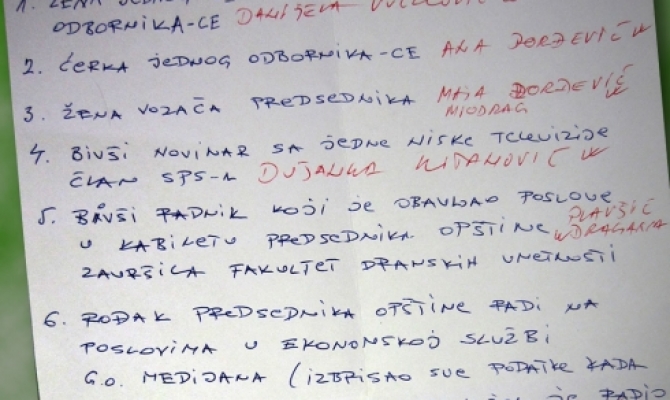 1. ŽENA
ODBORNIKA-CE DANIJELA
2. ĆERKA JEDNOG ODBORNIKA-CE ANA ĐORĐEVIĆ
3. ŽENA VOZAČA PREDSEDNIKA MAJA ĐORĐEVIĆ
MIODRAG
4. BIVŠI NOVINAR SA JEDNE NIŠKE TELEVIZIJE
ČLAN SPS-A DUŠANKA KITANOVIĆ
5. BIVŠI RADNIK KOJI JE OBAVLJAO POSLOVE PLAVŠIĆ
U KABINETU PREDSEDNIKA OPŠTINE DRAGANA
ZAVRŠILA FAKULTET DRAMSKIH UMETNOSTI
6. ROĐAK PREDSEDNIKA OPŠTINE RADI NA
POSLOVIMA U EKONOMSKOJ SLUŽBI
G.O. MEDIJANA (IZBRISAO SVE PODATKE KADA
JE RADIO